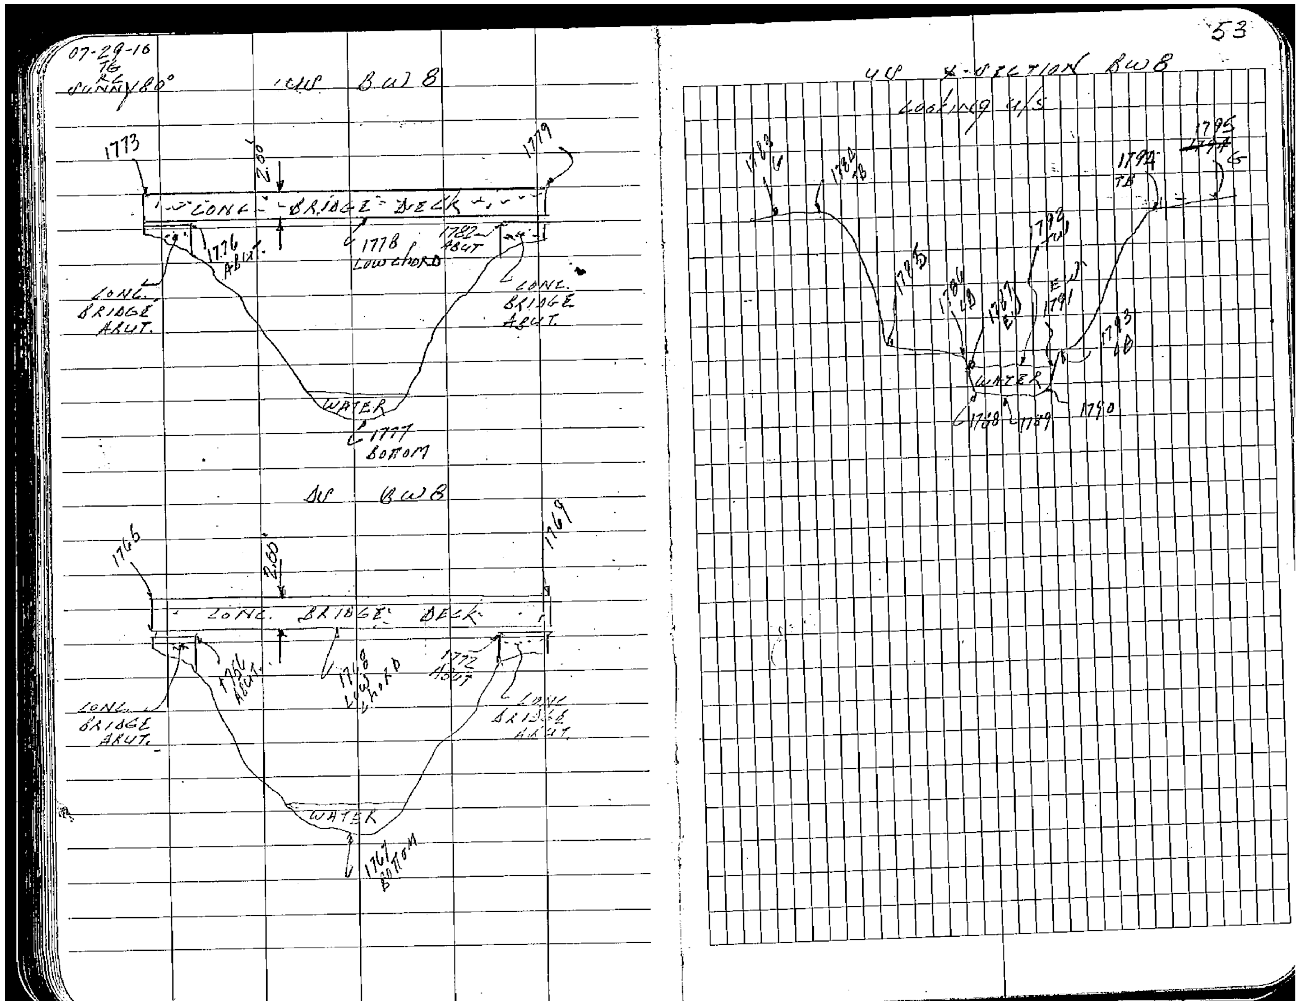 07-29-16
TG
RC
SUNNY/80°
U/S BW8
1773
2.00'
1779
CONC. BRIDGE DECK
1776
ABUT.
1778
LOW CHORD
1782
ABUT
CONC.
BRIDGE
ABUT.
CONC.
BRIDGE
ABUT.
WATER
1777
BOTTOM
DS BW8
1765
2.00'
1769
CONC. BRIDGE DECK
1766
ABUT.
1768
LOW
CHORD
1772
ABUT
CONC.
BRIDGE
ABUT.
CONC
BRIDGE
ABUT.
WATER
1767
BOTTOM
53
US X-SECTION BW8
LOOKING U/S
1783
G
1784
TB
1795
G
1794
TB
1785
1786
1787
1791
1793
WATER
1788
1789
1790